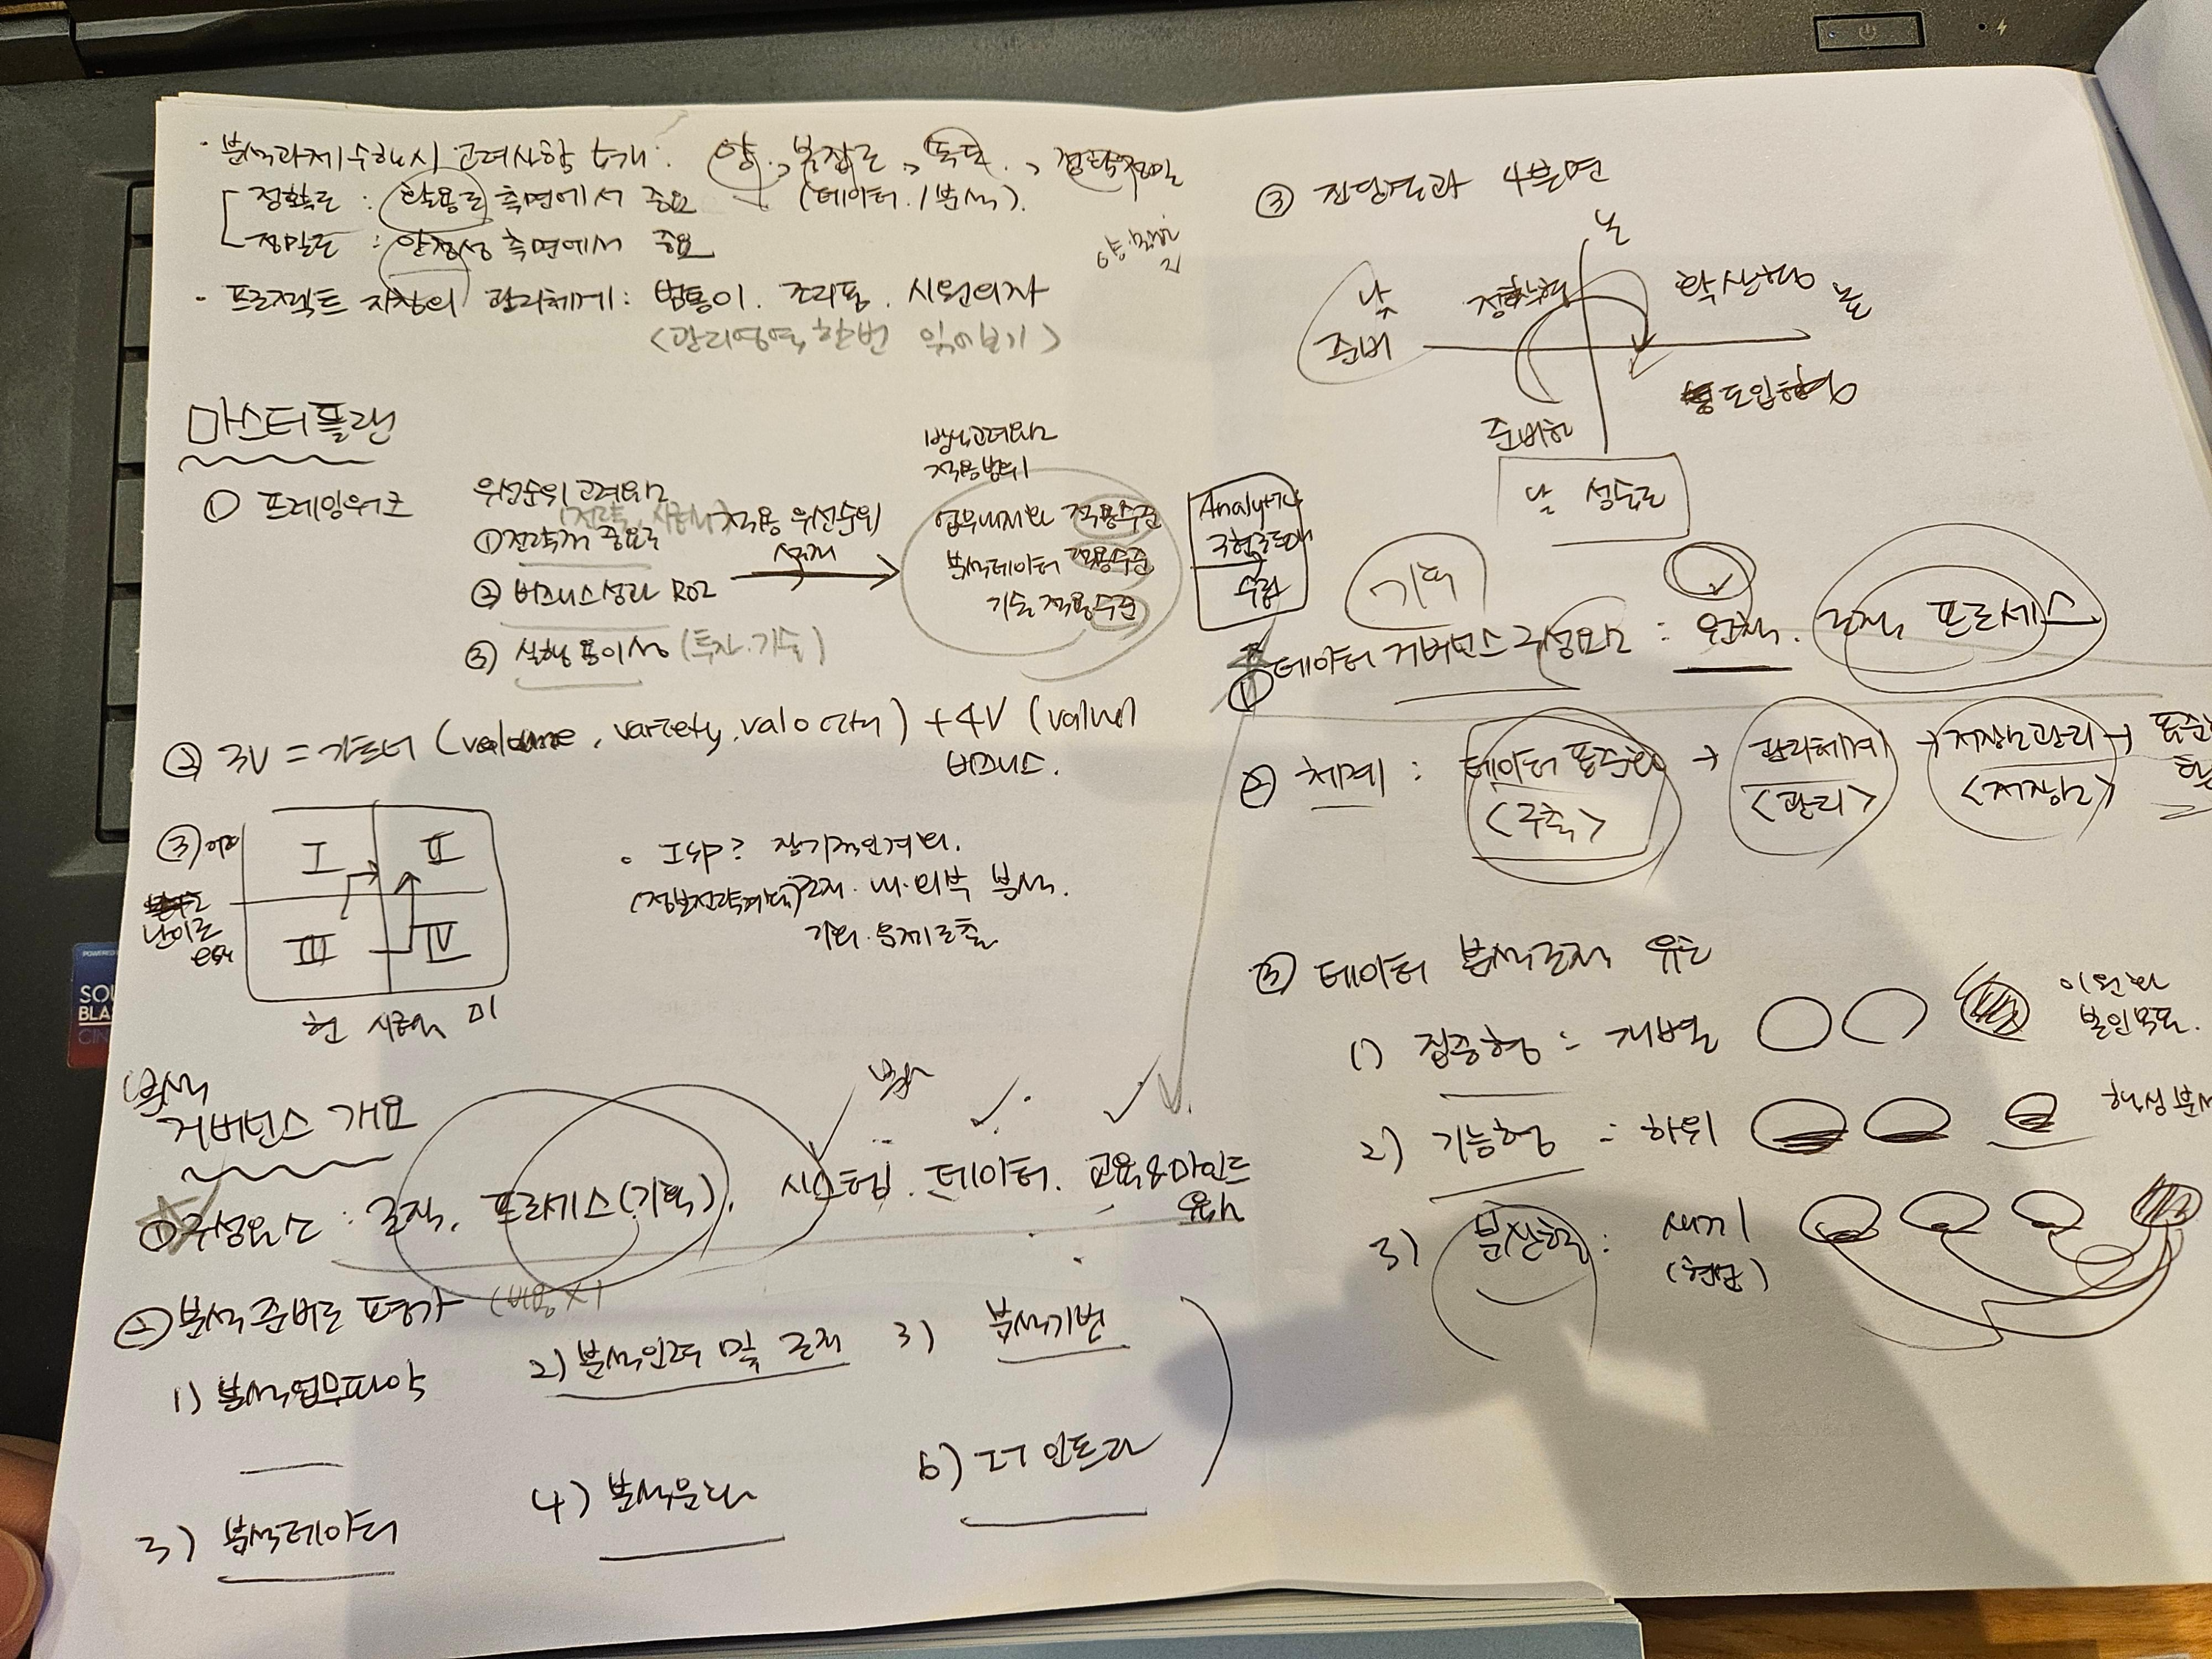 · 분석과제 수행시 고려사항 5개 : 양, 복잡도, 속도,
정확도 : 활용도 측면에서 중요 (데이터 / 분석)
정밀도 : 안정성 측면에서 중요
· 프로젝트 지향의 관리체계 : 범통이. 조리품. 시원의자
<관리영역 한번 읽어보기>
마스터플랜
① 프레임워크
우선순위 고려요소
① 전략적 중요도
② 비즈니스 성과 ROI
③ 실행 용이성 (투자. 기술)
적용 우선순위
설정
적용범위
업무내재화 적용수준
분석데이터 적용수준
기술 적용수준
Analytics
구현로드맵
수립
② 3V = 가트너 (volume, variety, valocity) + 4V (value)
비즈니스.
③ 어려
I II
난이도
III IV
easy
현 시급성 미
· ISP? 장기적인 계획.
(정보전략계획) 조직. 내·외부 분석.
기회. 문제 도출
분석
거버넌스 개요
① 구성요소 : 조직, 프로세스(기획), 시스템. 데이터. 교육&마인드
육성
② 분석준비도 평가 (비용X)
1) 분석업무파악
2) 분석인력 및 조직
3) 분석기법
3) 분석데이터
4) 분석문화
6) IT 인프라
③ 진단결과 4분면
높
낮
준비
정착형
확산형
높
도입형
준비형
낮 성숙도
기획
① 데이터 거버넌스 구성요소 : 원칙. 조직, 프로세스
② 체계 : 데이터 표준화 → 관리체계 → 저장소관리 → 표준
<구축> <관리> <저장소>
③ 데이터 분석조직 유형
1) 집중형 = 개별
이원화
2) 기능형 = 하위
3) 분산형 : 새기
(협업)
POWERED
SOU
BLA
CIN